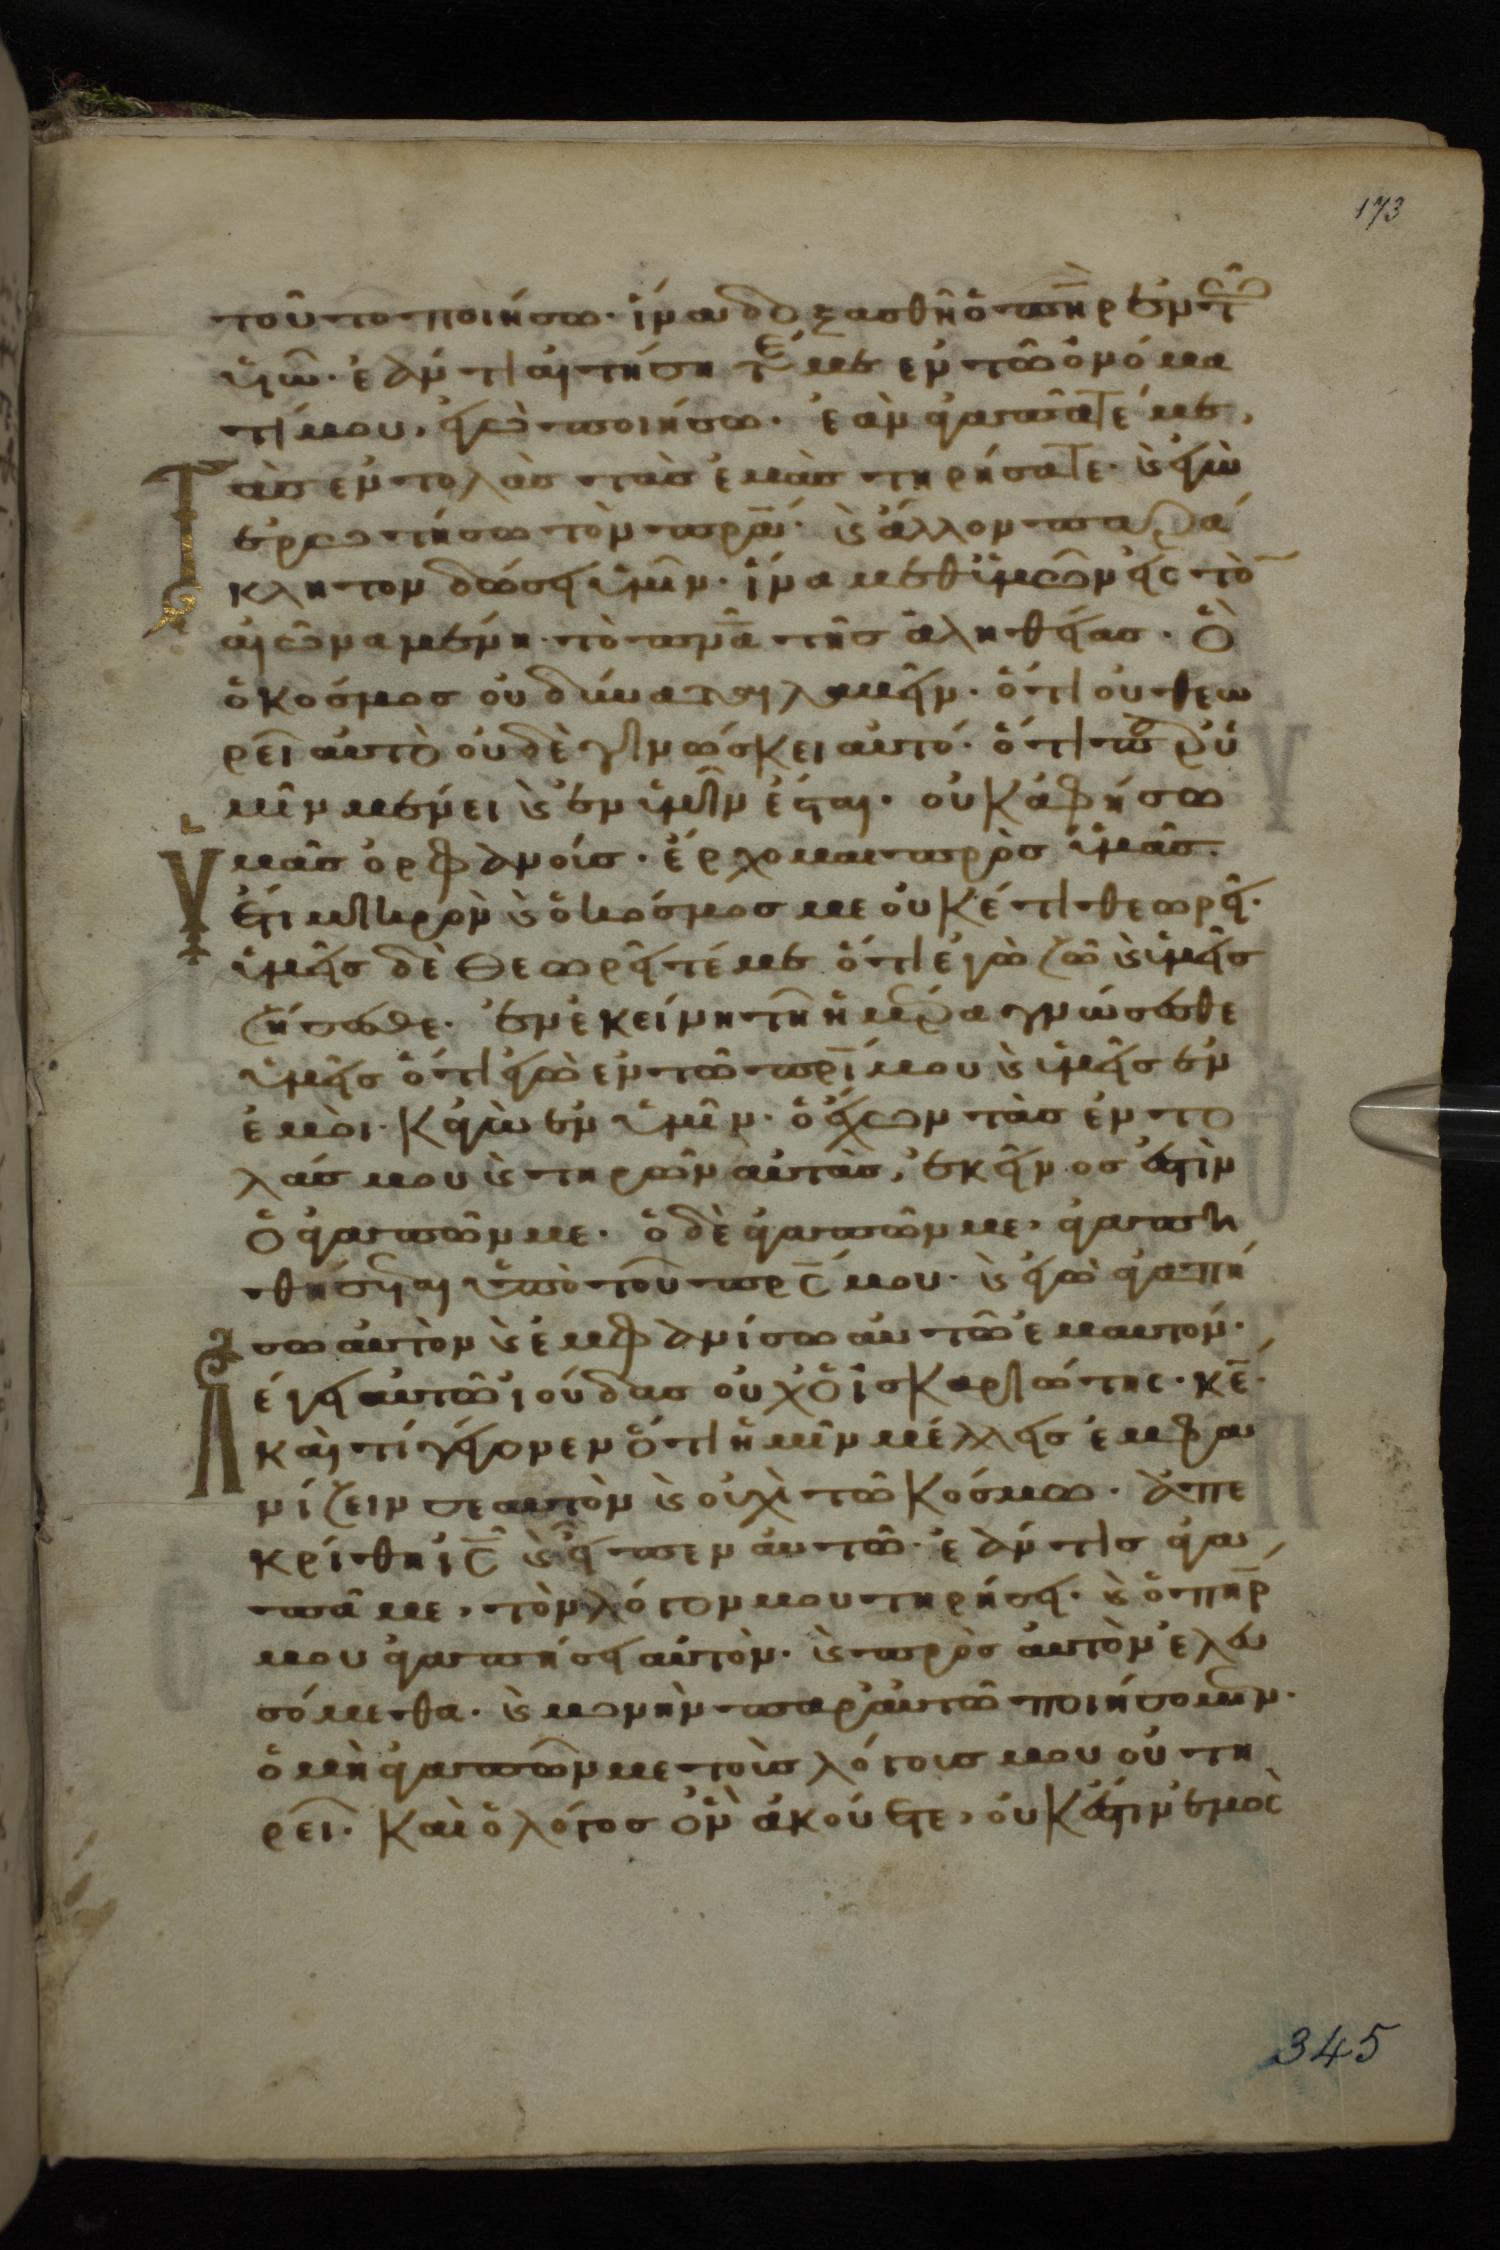 173
τοῦτο ποιήσω· ἵνα δοξασθῆ ὁ πηρ ἐν τῶ
ὑιῶ· ἐάν τι αἰτήσητέ με ἐν τῶ ὀνόμα
τί μου, ἐγὼ ποιήσω· ἐὰν ἀγαπᾶτέ με,
Τὰς ἐντολὰς τὰς ἐμὰς τηρήσατε· ϗ ἐγὼ
ἐρωτήσω τὸν πρα· ϗ ἄλλον παρά
κλητον δώσει ὑμῖν· ἵνα μεθ ὑμῶν εἰς τὸ
αἰῶνα μένη· τὸ πνα τῆς ἀληθείας· ὃ
ὁ κόσμος οὐ δύναται λαβεῖν· ὅτι οὐ θεω
ρεῖ αὐτὸ οὐδὲ γινώσκει αὐτό· ὅτι παρ ὑ
μῖν μένει ϗ ἐν ὑμῖν ἔσται· οὐκ ἀφήσω
Ὑμᾶς ὀρφανοίς· ἔρχομαι πρὸς ὑμᾶς·
ἔτι μικρὸν ϗ ὁ κόσμος με οὐκέτι θεωρεῖ·
ὑμεῖς δὲ θεωρεῖτέ με ὅτι ἐγὼ ζῶ ϗ ὑμεῖς
ζήσεσθε· ἐν ἐκείνη τῆ ἡμέρα γνώσεσθε
ὑμεῖς ὅτι ἐγὼ ἐν τῶ πρι μου ϗ ὑμεῖς ἐν
ἐμοὶ· κἀγὼ ἐν ὑμῖν· ὁ ἔχων τὰς ἐντο
λάς μου ϗ τηρῶν αὐτὰς, ἐκεῖνος ἐστὶν
ὁ ἀγαπῶν με· ὁ δὲ ἀγαπῶν με, ἀγαπη
θήσεται ὑπὸ τοῦ πρς μου· ϗ ἐγὼ ἀγαπή
σω αὐτὸν ϗ ἐμφανίσω αὐτῶ ἐμαυτόν·
Λέγει αὐτῶ ἰούδας οὐχ ὁ ἰσκαριώτης· κε·
καὶ τί γέγονεν ὅτι ἡμῖν μέλλεις ἐμφα
νίζειν σεαυτὸν ϗ οὐχὶ τῶ κόσμω· ἀπε
κρίθη ις ϗ εἶπεν αὐτῶ· ἐάν τις ἀγα
πᾶ με, τὸν λόγον μου τηρήσει· ϗ ὁ πηρ
μου ἀγαπήσει αὐτὸν· ϗ πρὸς αὐτὸν ἐλευ
σόμεθα· ϗ μονὴν παρ αὐτῶ ποιήσομεν·
ὁ μὴ ἀγαπῶν με τοὺς λόγοις μου οὐ τη
ρεῖ· καὶ ὁ λόγος ὃν ἀκούετε, οὐκ ἔστιν ἐμὸς
345